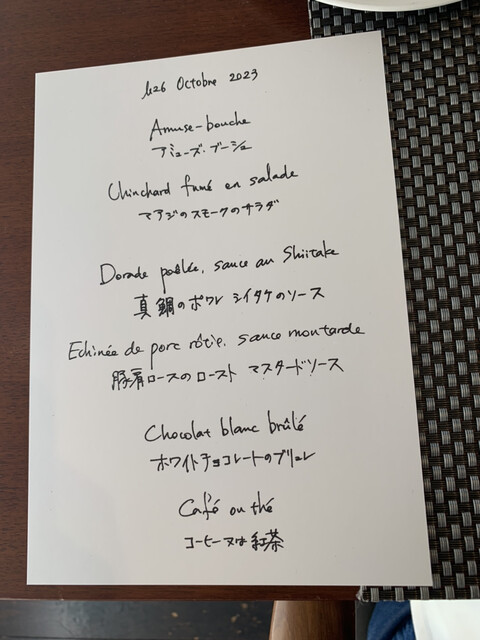 le 26 Octobre 2023
Amuse-bouche
アミューズ・ブーシュ
Chinchard fumé en salade
マアジのスモークのサラダ
Dorade poêlée, sauce au Shiitake
真鯛のポワレ シイタケのソース
Echinée de porc rôtie, sauce moutarde
豚肩ロースのロースト マスタードソース
Chocolat blanc brûlé
ホワイトチョコレートのブリュレ
Café ou thé
コーヒー又は紅茶